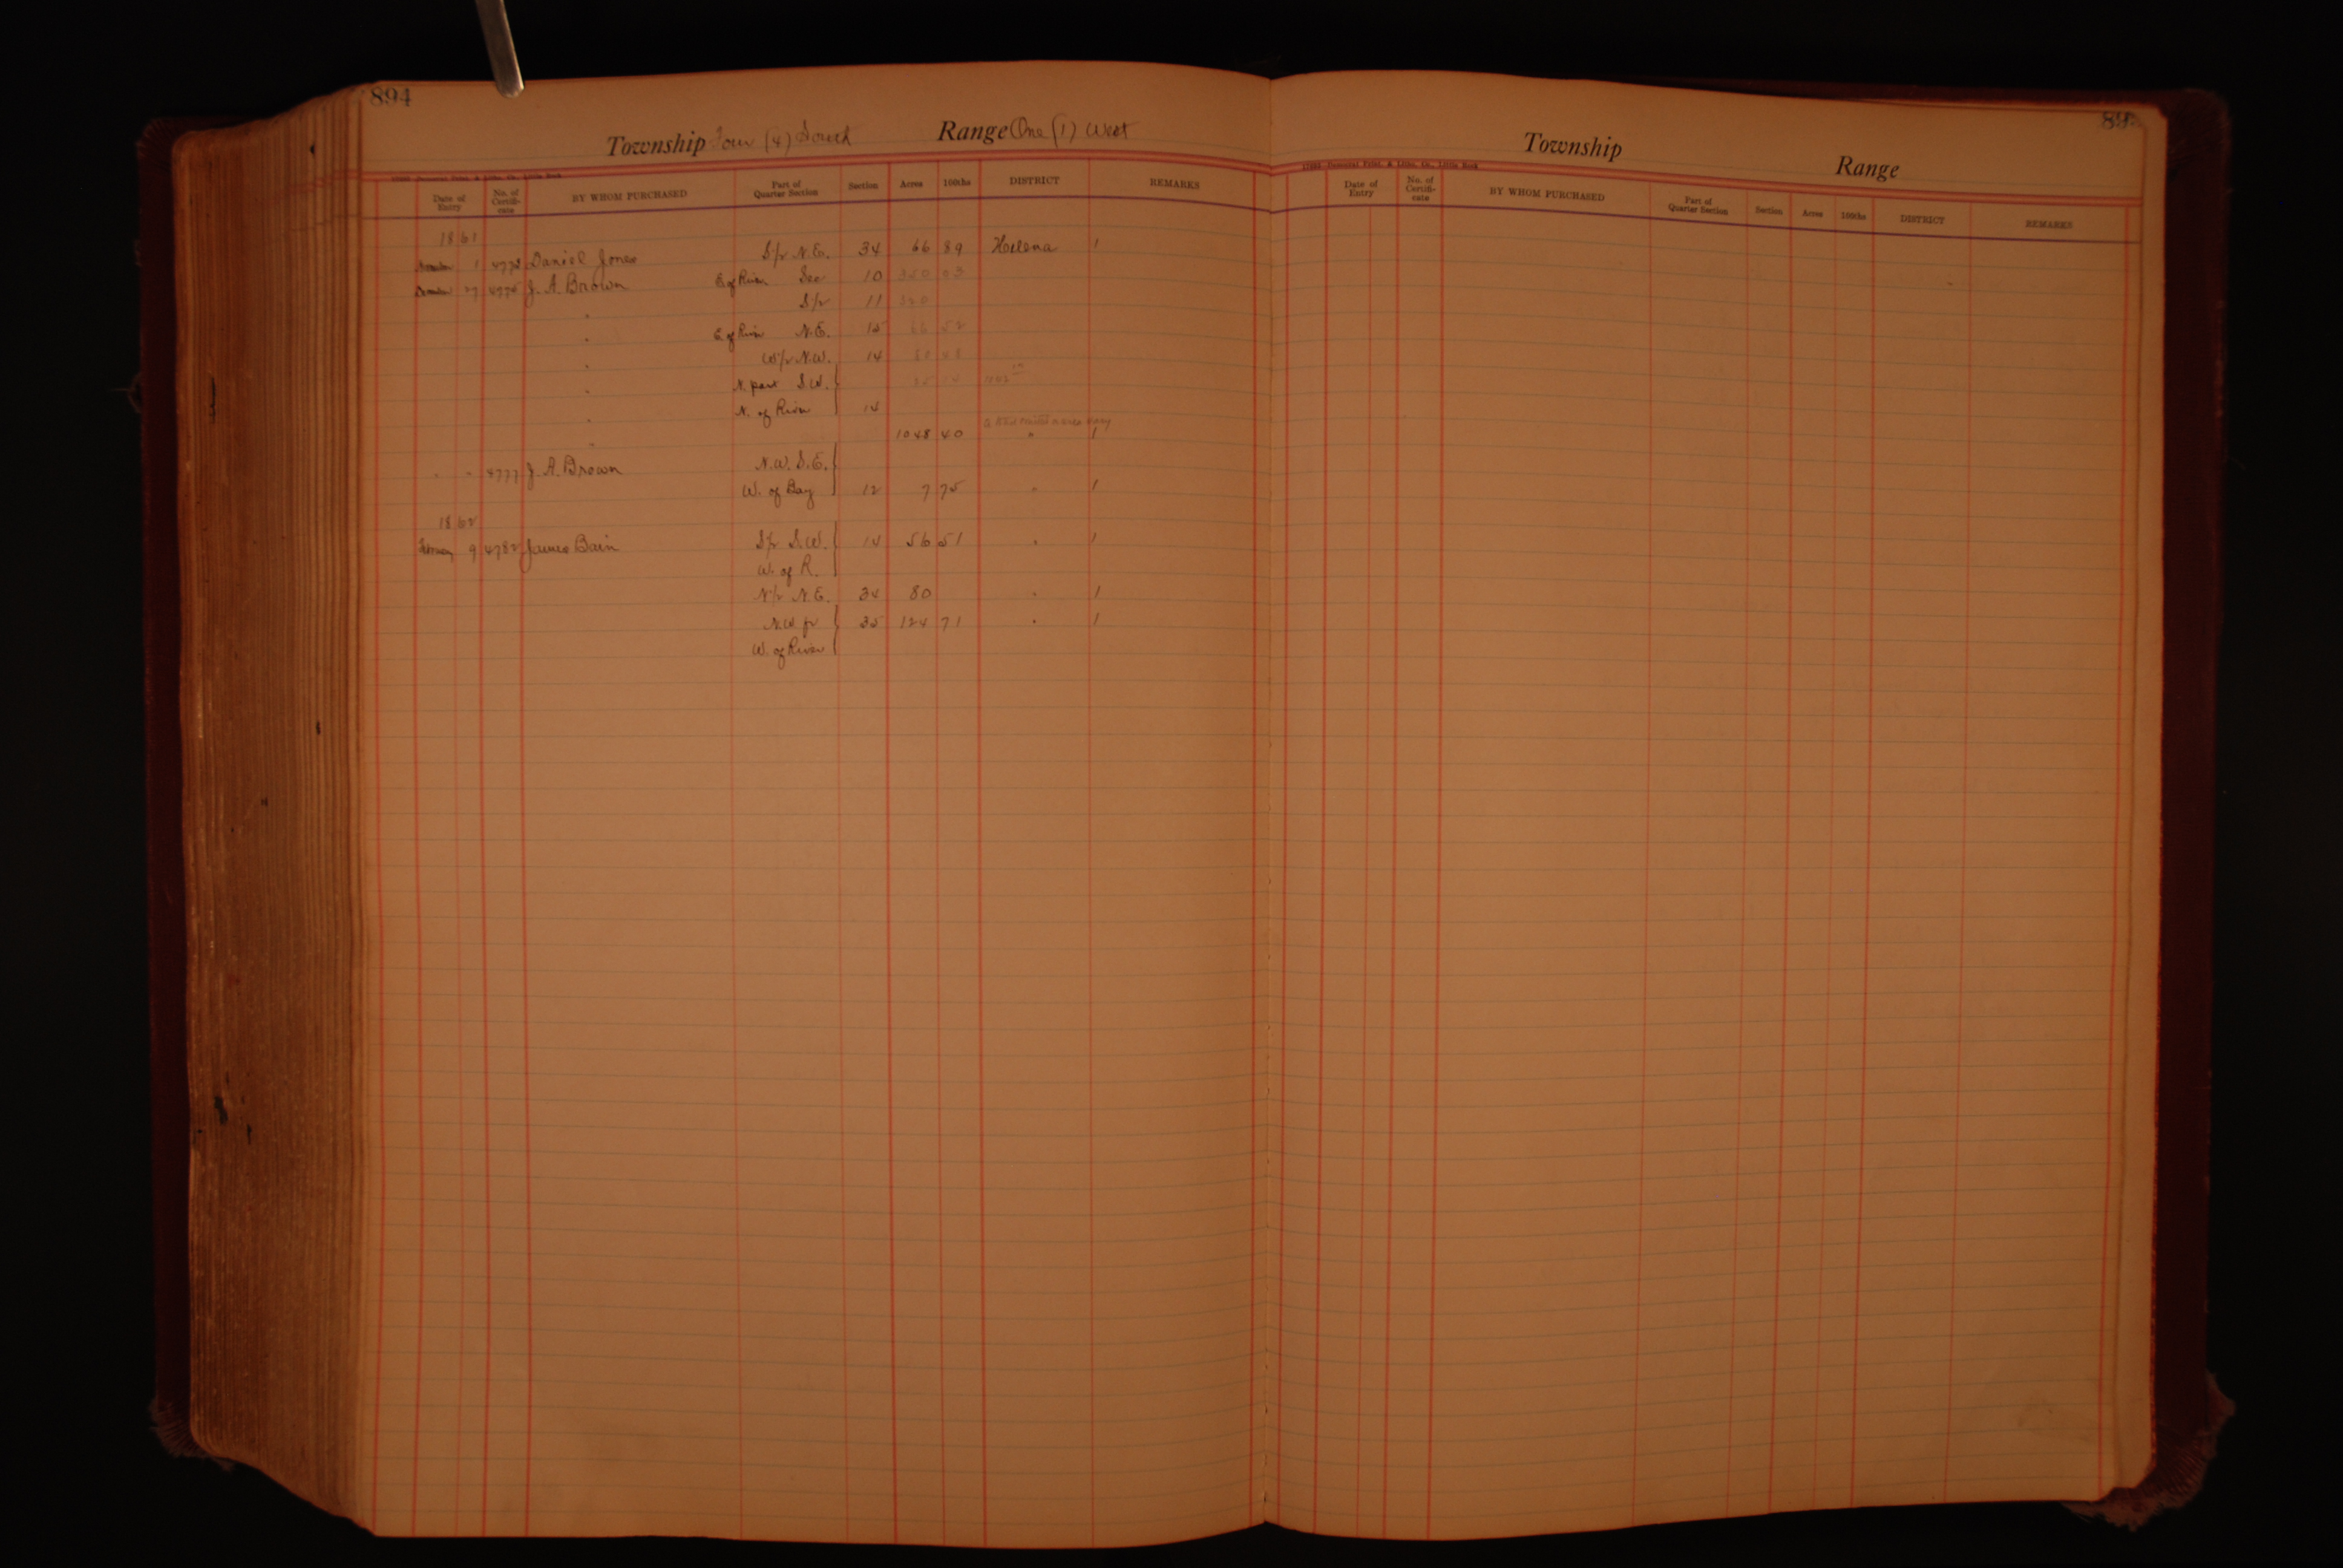 894
Township Four (4) South Range One (1) West
Democrat Print. & Litho. Co., Little Rock
Date of Entry No. of Certifi-cate BY WHOM PURCHASED Part of Quarter Section Section Acres 100ths DISTRICT REMARKS
1861
November 1 Daniel Jones S/2 N.E. 34 66 89 Helena 1
December 27 4776 J. A. Brown E of River Sec 10
" S/2 11 320
" E of River N.E. 15
" W/2 N.W. 14
" N. part S.W.
" N. of River 14
" 1048 40 " 1
" " 4777 J. A. Brown N.W. S.E.
W. of Bay 12 7 75 " 1
1862
February 9 4782 James Bain S/2 S.W. 14 56 51 " 1
W. of R.
N/2 N.E. 34 80 " 1
N.W. fr 35 124 71 " 1
W. of River
Township Range
Democrat Print. & Litho. Co., Little Rock
Date of Entry No. of Certifi-cate BY WHOM PURCHASED Part of Quarter Section Section Acres 100ths DISTRICT REMARKS